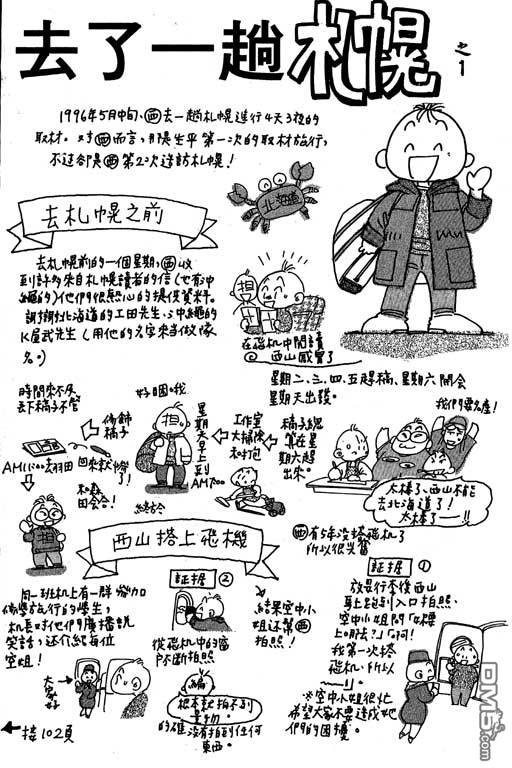 去了一趟札幌 之1
1996年5月中旬、㊄去一趟札幌進行4天3夜的
取材。對㊄而言,那是生平第一次的取材旅行,
不過卻是㊄第2次造訪札幌!
北海道
去札幌之前
去札幌前的一個星期,㊄收
到許多來自札幌讀者的信(也有沖
繩的)他們很熱心的提供資料。
謝謝北海道的工田先生、沖繩的
K屋武先生(用他的名字來當做隊
名。)
担
在飛机中閱讀
西山感覺了
星期二、三、四、五趕稿、星期六開會
星期天出發。
我們要名產!
稿子總
算在星
期六趕
出來。
工作室
大掃除
和打包
星期天早上到
AM7:00
好睏。我
担
修飾
稿子
時間來不及
丟下稿子不管
AM11:00去羽田
回來就慘了!
和森
田會合!
担
太棒了、西山不能
去北海道了!
太棒了——!!
西山搭上飛機
㊄有5年沒搭飛机了
所以很興奮
証据 ①
放是行李後西山
馬上跑到入口拍照、
空中小姐問「好棒
上哪去?」「啊!
我第一次搭
飛机、所以
※空中小姐很忙
希望大家不要造成她
們的困擾。
証据 ②
結果空中小
姐还幫㊄
拍照!
從飛机中的窗
戶不斷拍照!
編
根本就拍不到
景物。
的確沒有拍到任何
東西。
同一班机上有一群
修學旅行的學生,
机長对他們廣播說
笑話,还介紹每位
空姐!
大家好
接102頁
DM5.com